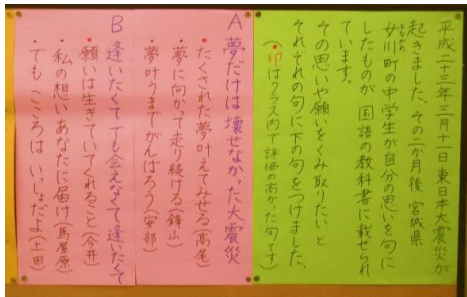 平成二十三年三月十一日 東日本大震災が
起きました。その二か月後 宮城県
女川町の中学生が自分の思いを句に
おながわ
したものが 国語の教科書に載せられ
ています。
その思いや願いをくみ取りたいと
それぞれの句に下の句をつけました。
(・印はクラス内で評価の高かった句です)
A 夢だけは 壊せなかった 大震災
・たくされた夢 叶えてみせる(高尾)
・夢に向かって 走り続ける(鋒山)
・夢叶うまで がんばろう(安部)
B 逢いたくて でも会えなくて 逢いたくて
・願いは生きていてくれること(今井)
・私の想い あなたに届け(馬屋原)
・でも こころは いっしょだよ(上田)